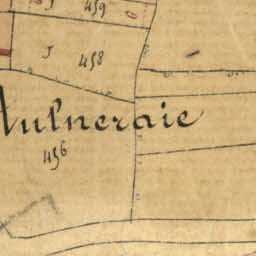 459
J 458
Aulneraie
456